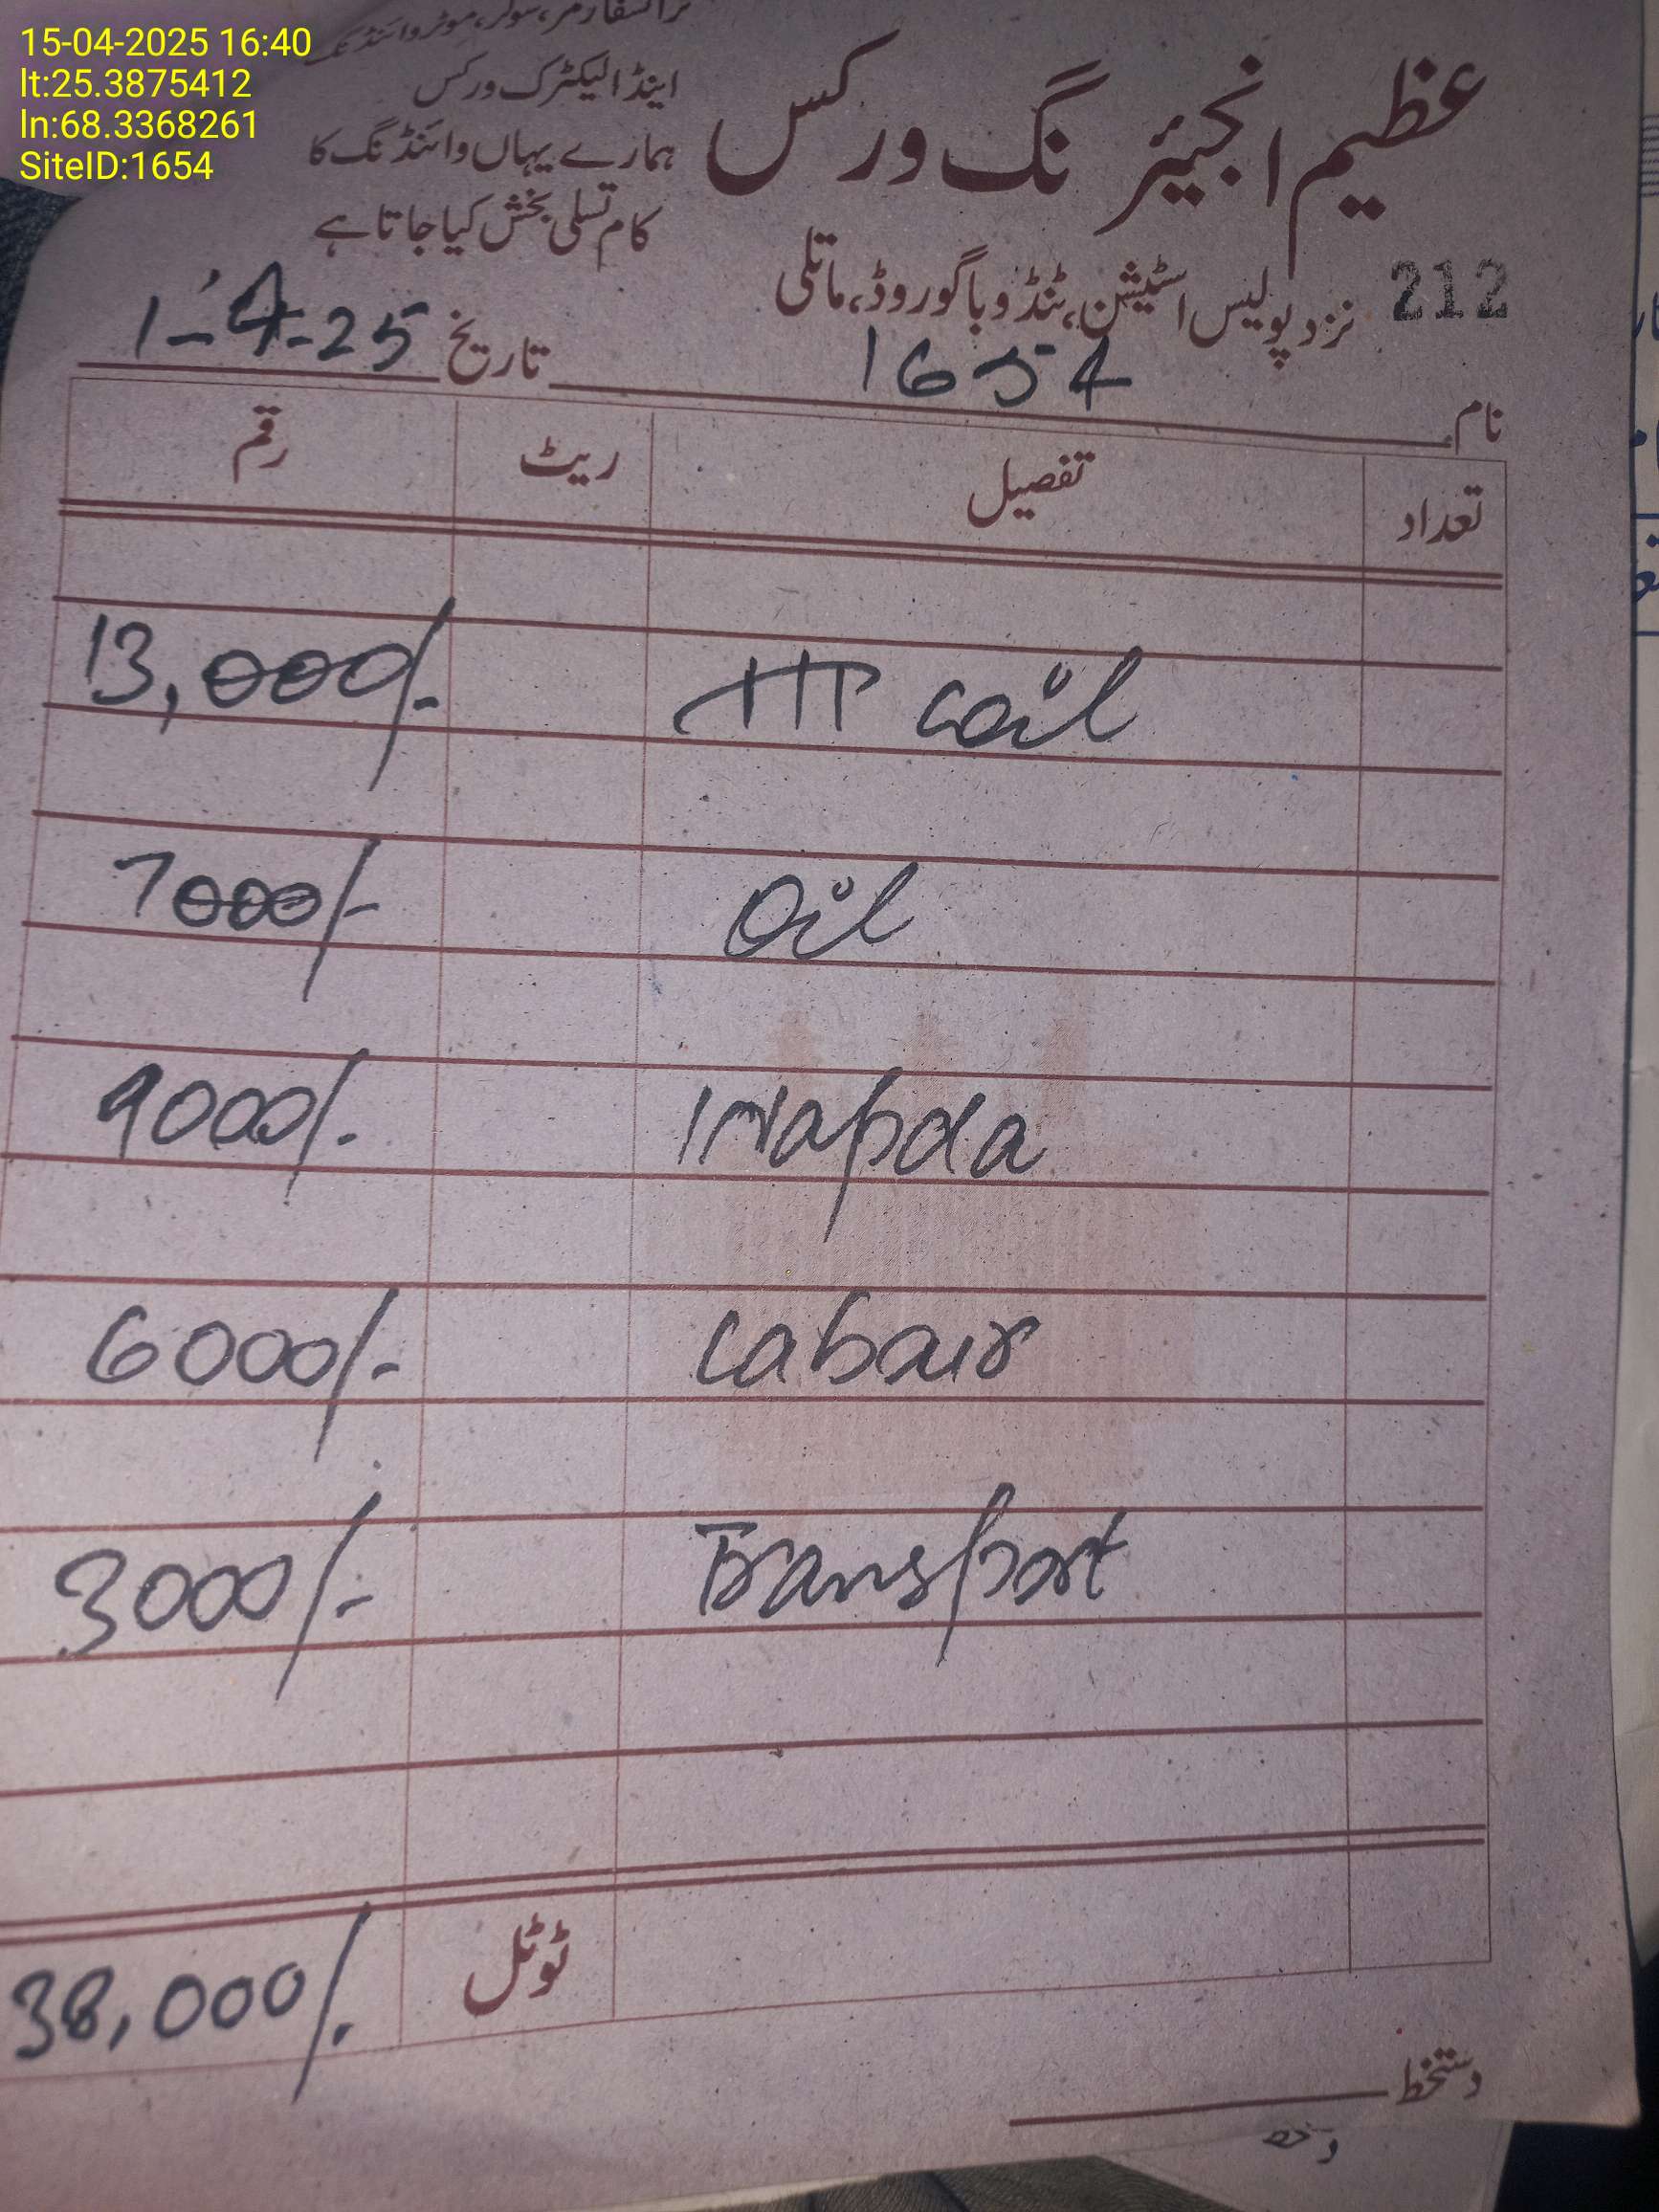 15-04-2025 16:40
lt:25.3875412
ln:68.3368261
SiteID:1654
ٹرانسفارمر، سولر، موٹر وائنڈنگ
اینڈ الیکٹرک ورکس
ہمارے یہاں وائنڈنگ کا
کام تسلی بخش کیا جاتا ہے
عظیم انجینئرنگ ورکس
212 نزد پولیس اسٹیشن، ٹنڈو باگو روڈ، ماتلی
نام 1654 تاریخ 1-4-25
تعداد تفصیل ریٹ رقم
HT coil 13,000/-
Oil 7000/-
Wapda 9000/-
Labair 6000/-
Transport 3000/-
ٹوٹل 38,000/-
دستخط